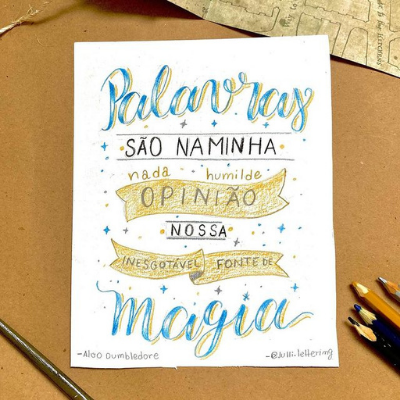 Palavras
SÃO NA MINHA
nada humilde
OPINIÃO
NOSSA
INESGOTÁVEL FONTE DE
Magia
-Alvo Dumbledore